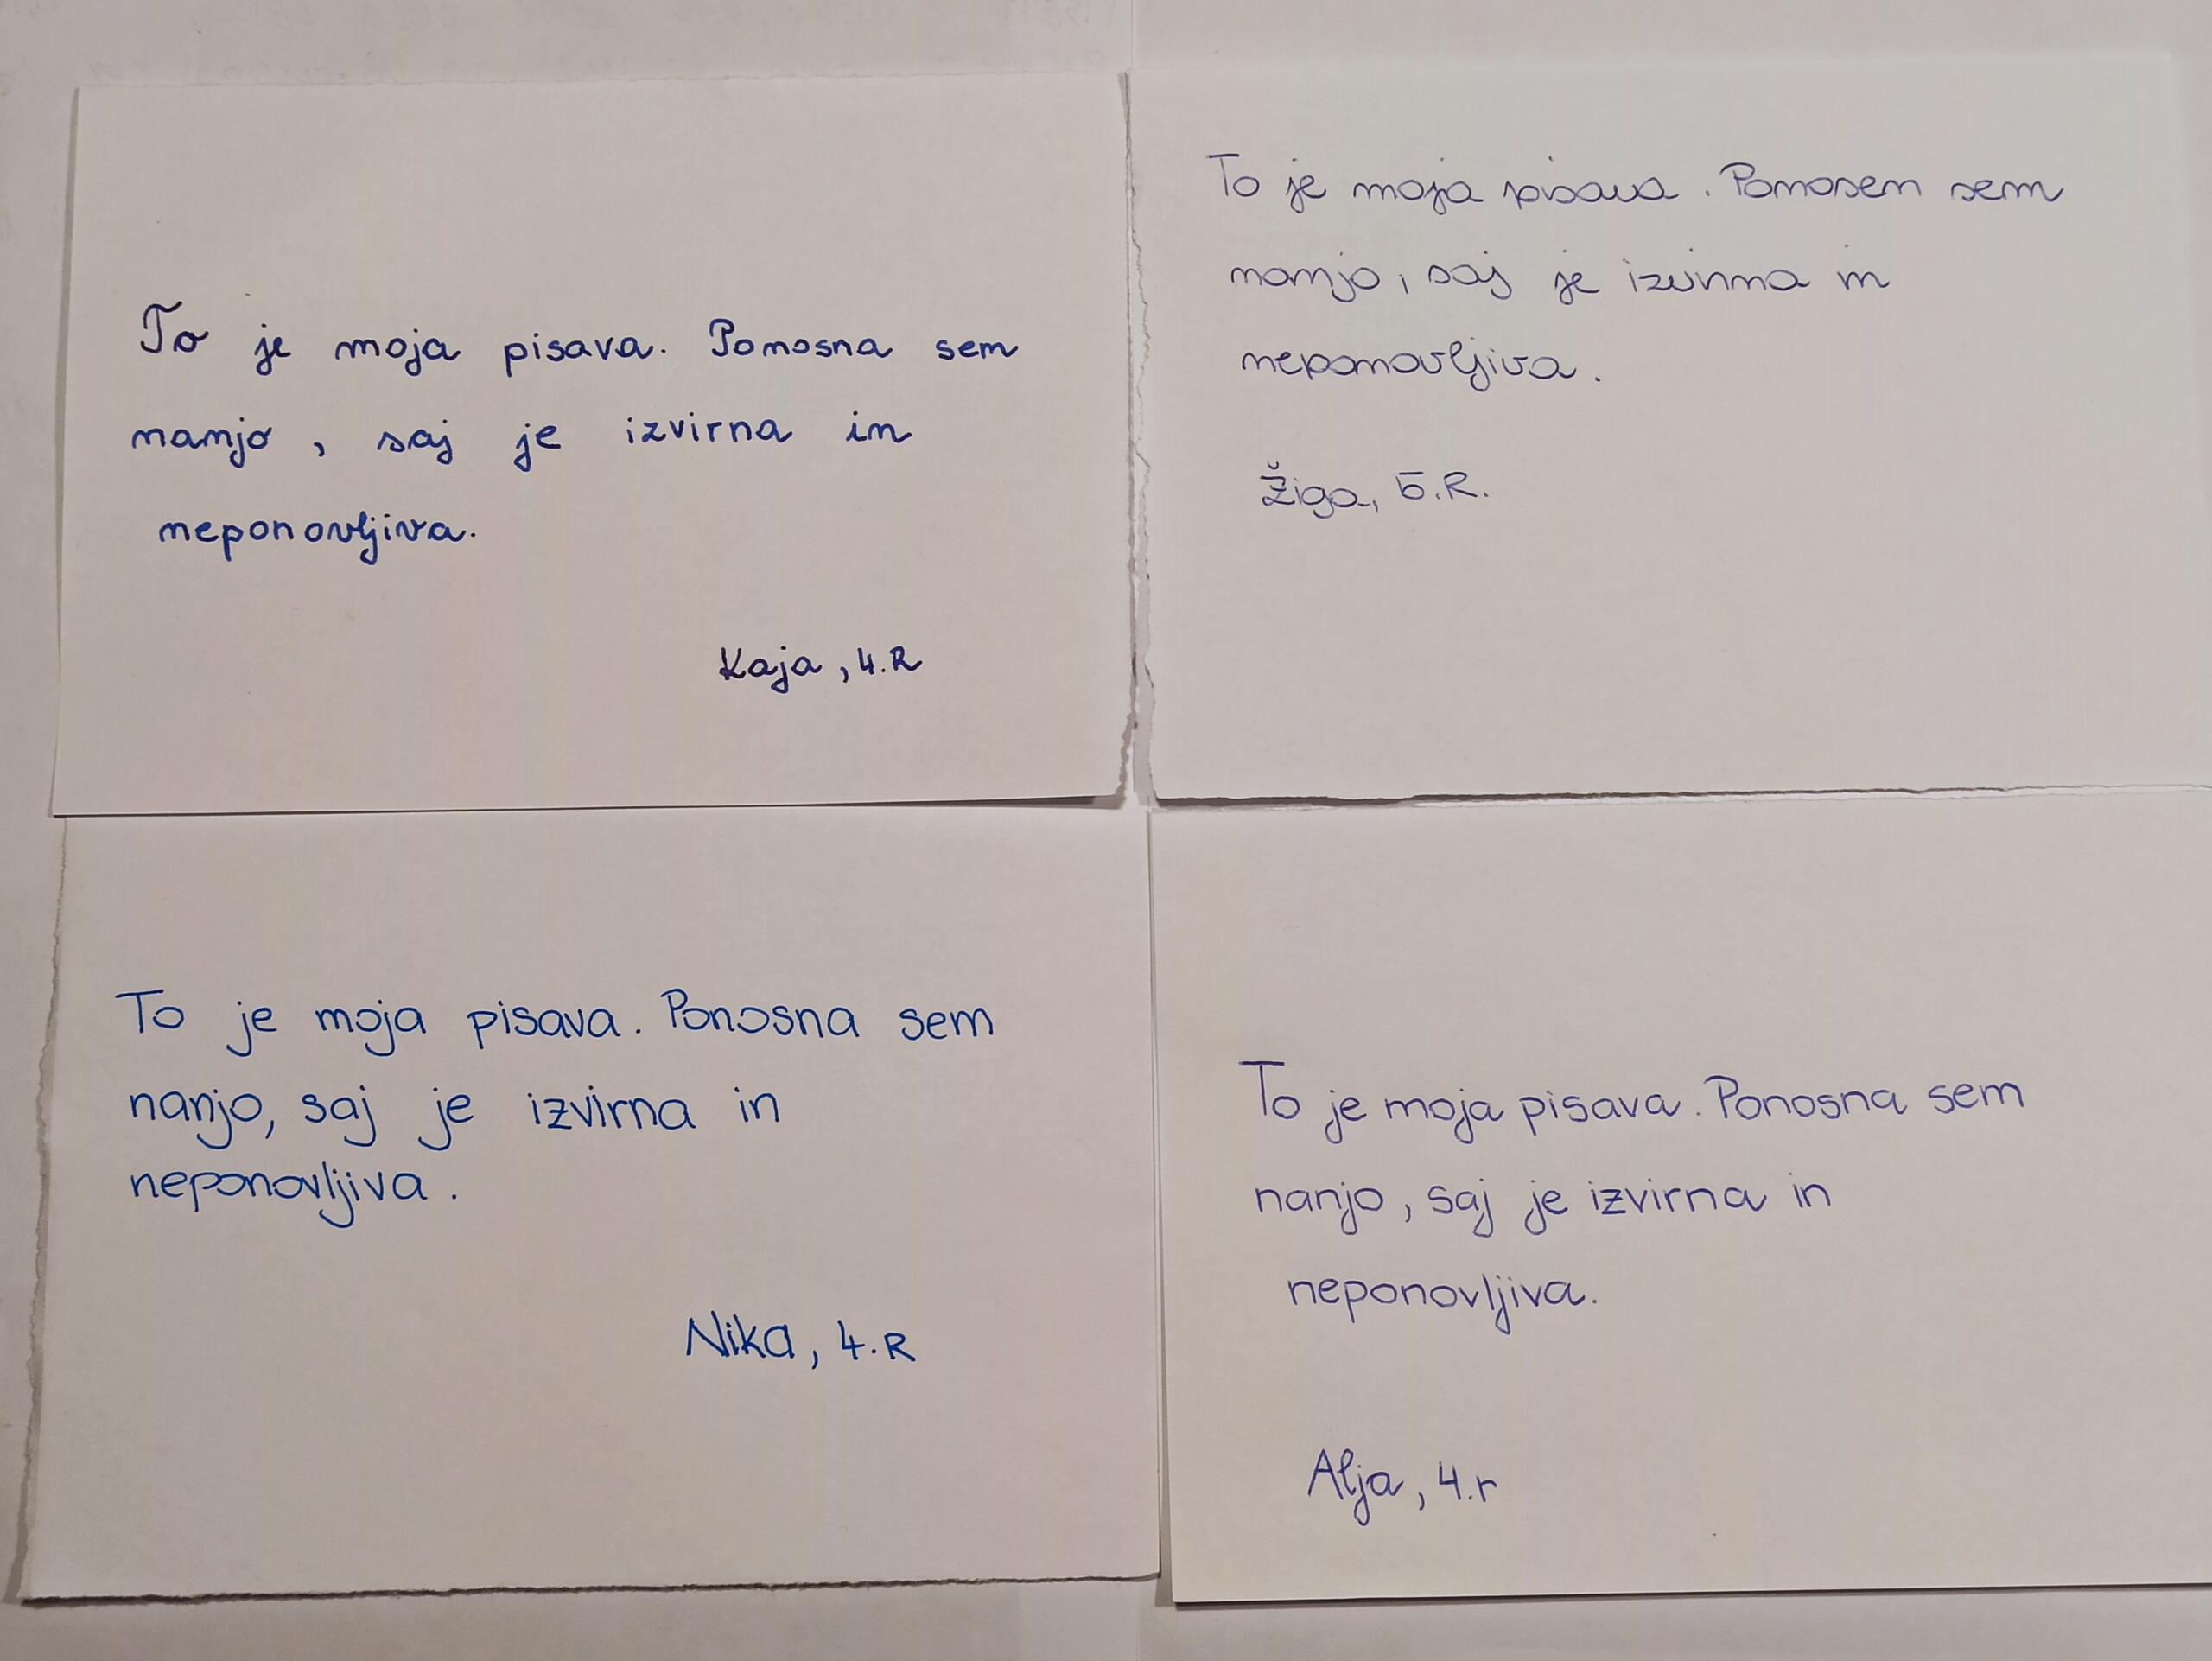 To je moja pisava. Ponosna sem
nanjo, saj je izvirna in
neponovljiva.
Kaja, 4.R
To je moja pisava. Ponosen sem
nanjo, saj je izvirna in
neponovljiva.
Žiga, 5.R.
To je moja pisava. Ponosna sem
nanjo, saj je izvirna in
neponovljiva.
Nika, 4.R
To je moja pisava. Ponosna sem
nanjo, saj je izvirna in
neponovljiva.
Alja, 4.r